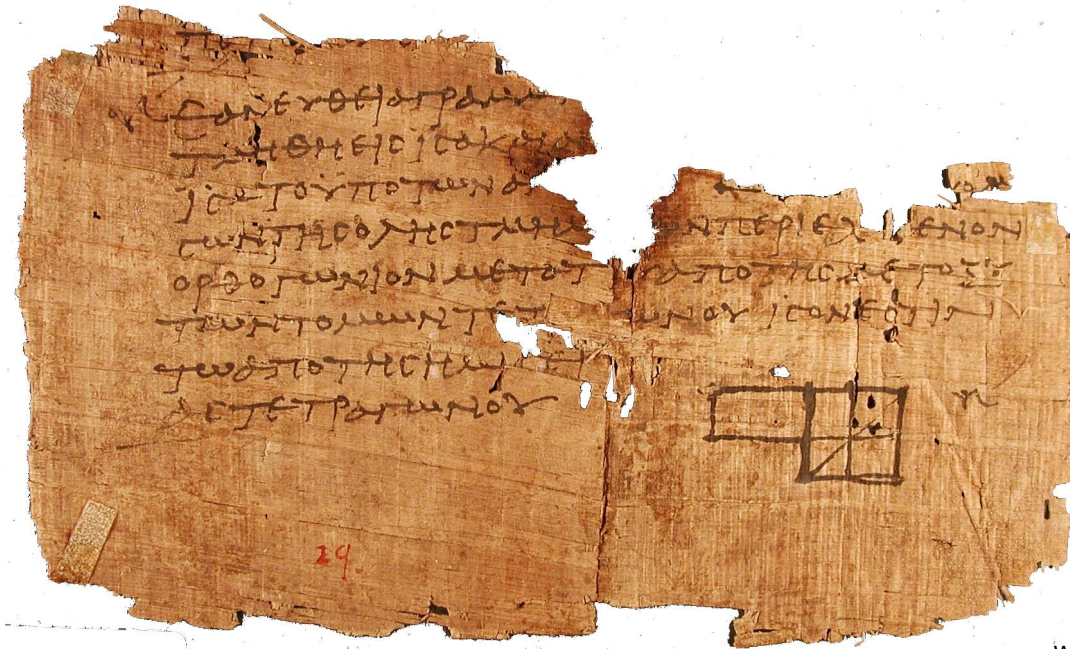 ΕΑΝ ΕΥΘΕΙΑ ΓΡΑΜΜ
ΤΜΗΘΗ ΕΙΣ ΙΣΑ ΚΑΙ ΑΝ
ΙΣΑ ΤΟ ΥΠΟ ΤΩΝ ΑΝ
ΣΩΝ ΤΗΣ ΟΛΗΣ ΤΜΗΜ ΩΝ ΠΕΡΙΕΧ ΜΕΝΟΝ
ΟΡΘΟΓΩΝΙΟΝ ΜΕΤΑ ΤΟΥ ΑΠΟ ΤΗΣ ΜΕΤΟΞΥ
ΤΩΝ ΤΟΜΩΝ ΤΕΤ ΩΝΟΥ ΙΣΟΝ ΕΣΤΙΝ
ΤΩ ΑΠΟ ΤΗΣ ΗΜΙ ΕΙ
ΑΣ ΤΕΤΡΑΓΩΝΟΥ
29